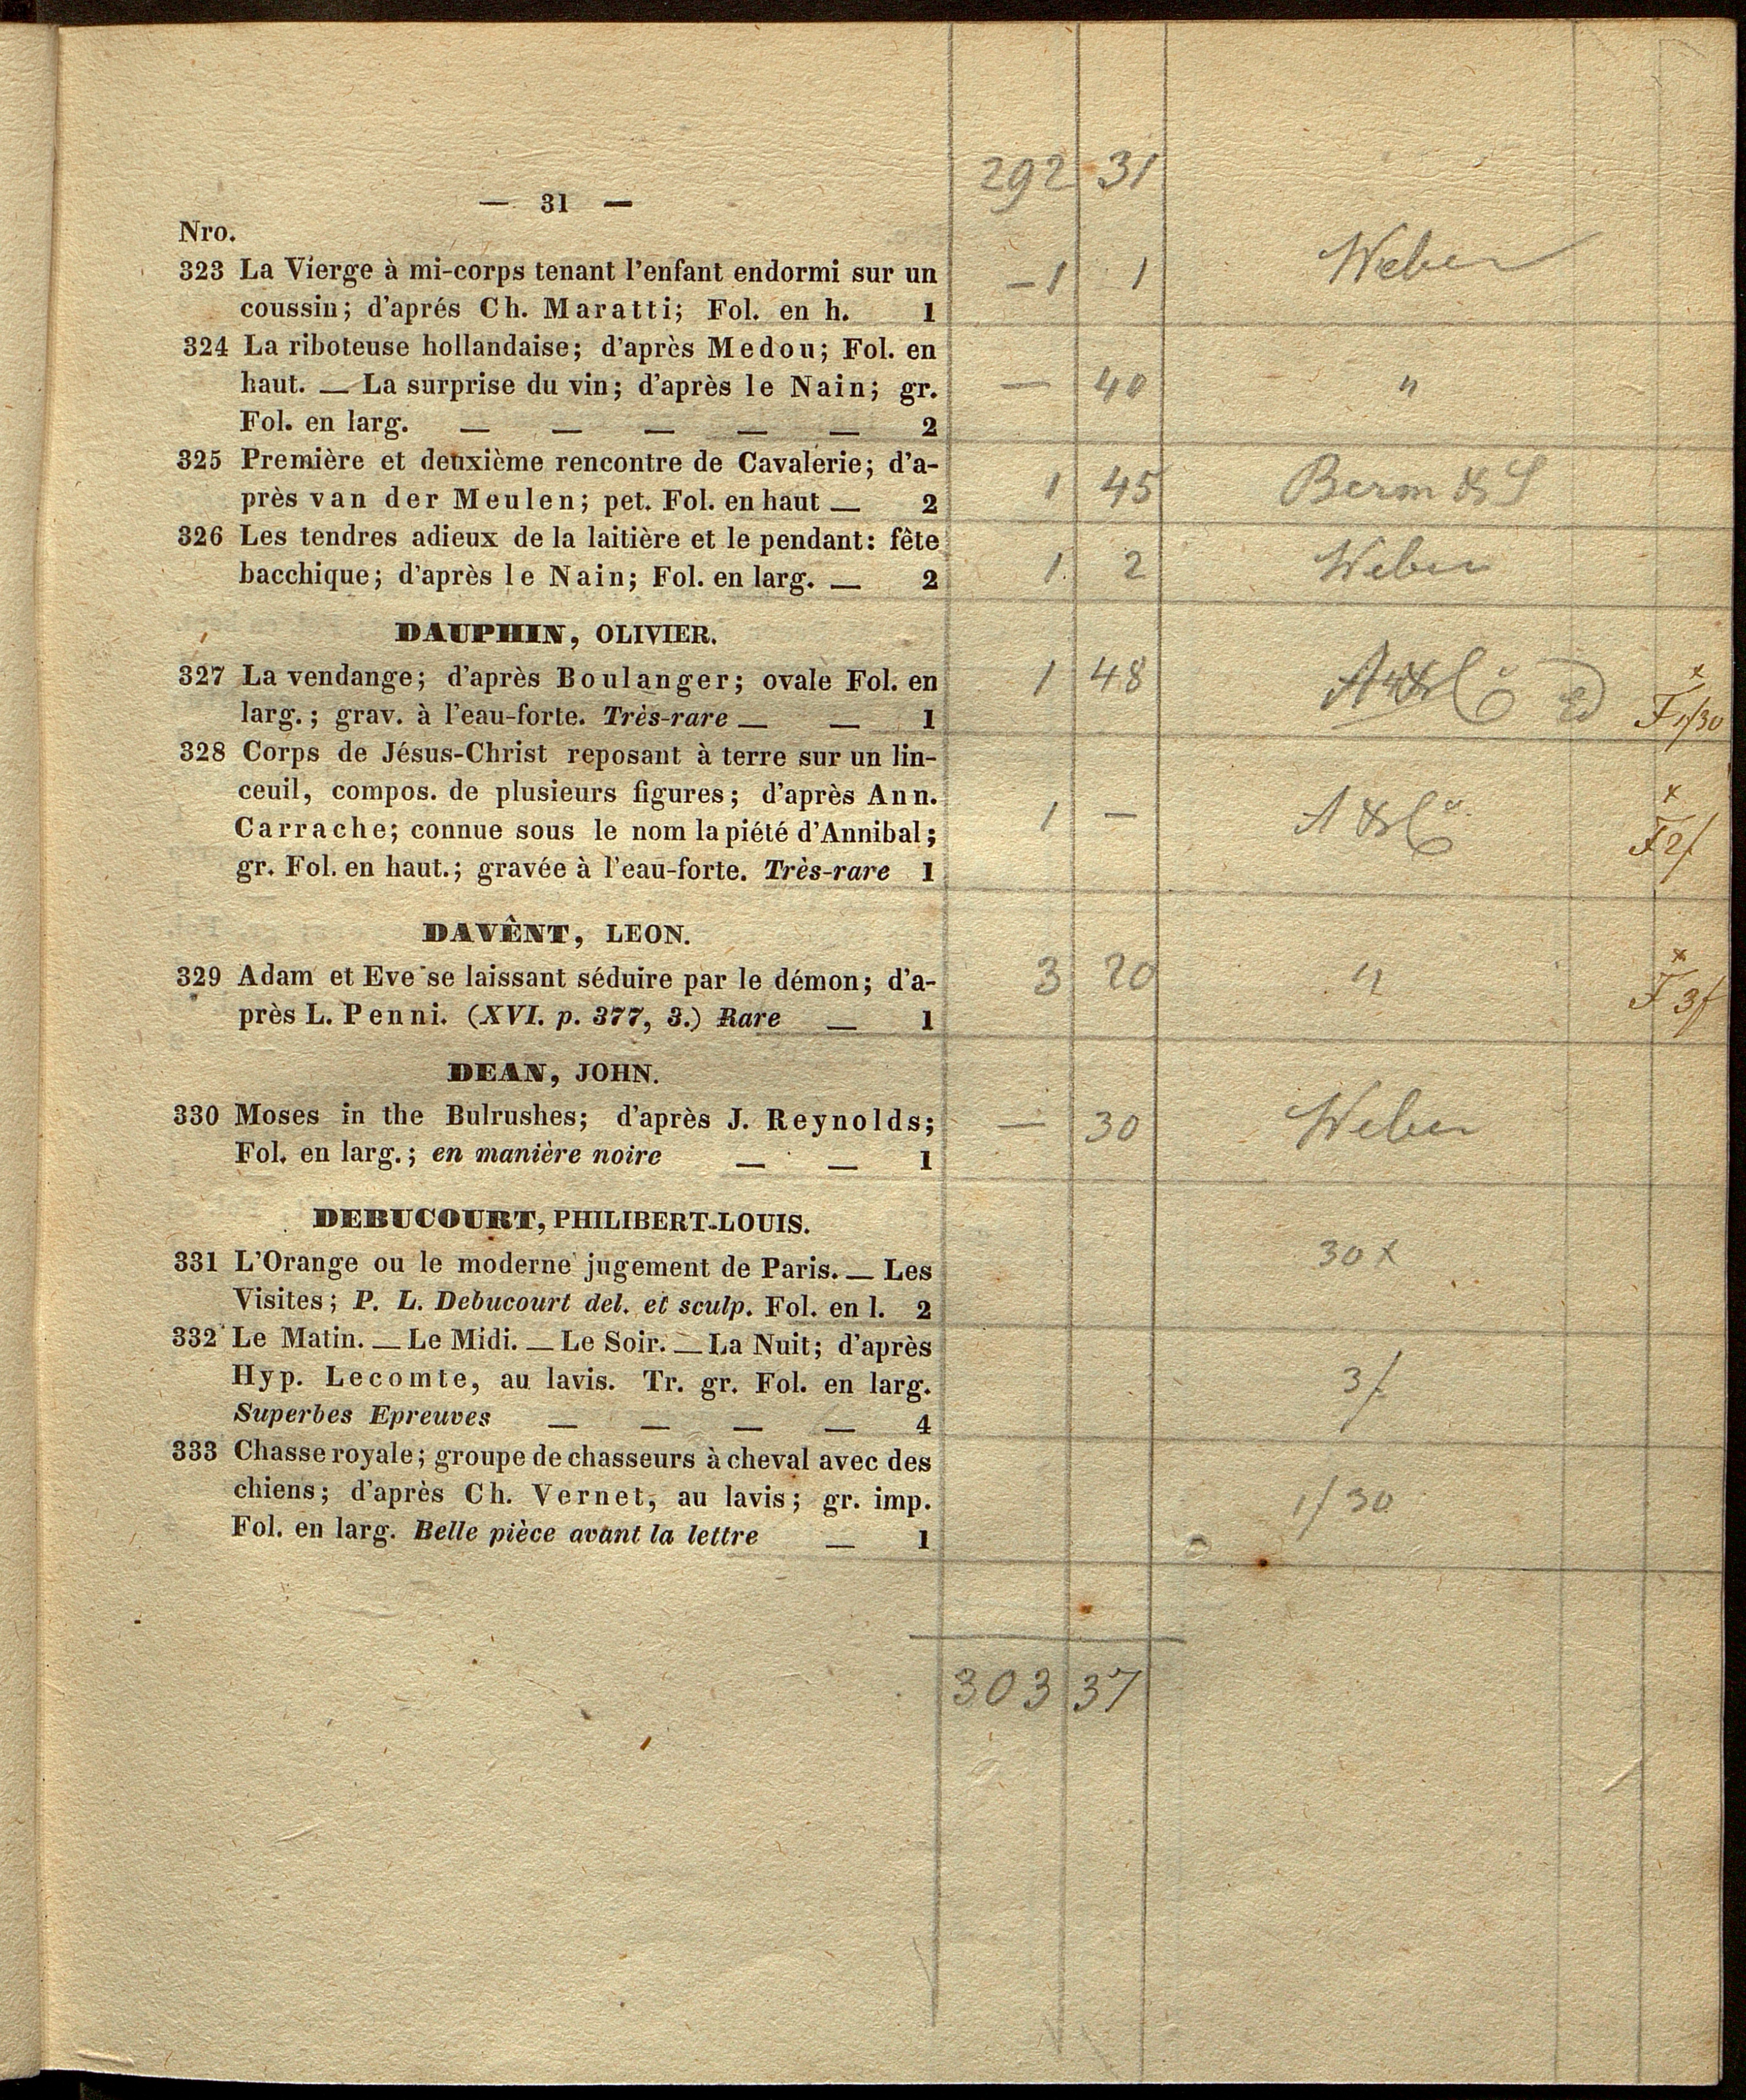 292 31
— 31 —
Nro.
323 La Vierge à mi-corps tenant l'enfant endormi sur un – 1 1 Weber
coussin; d'aprés Ch. Maratti; Fol. en h. 1
324 La riboteuse hollandaise; d'après Medou; Fol. en
haut. — La surprise du vin; d'après le Nain; gr. — 40 "
Fol. en larg. — — — — — 2
325 Première et deuxième rencontre de Cavalerie; d'a-
près van der Meulen; pet. Fol. en haut — 2 1 45 Berm & S
326 Les tendres adieux de la laitière et le pendant: fête
bacchique; d'après le Nain; Fol. en larg. — 2 1 2 Weber
DAUPHIN, OLIVIER.
327 La vendange; d'après Boulanger; ovale Fol. en 1 48 x
larg.; grav. à l'eau-forte. Très-rare — — 1 F 1/30
328 Corps de Jésus-Christ reposant à terre sur un lin-
ceuil, compos. de plusieurs figures; d'après Ann. x
Carrache; connue sous le nom la piété d'Annibal; 1 – A & Co F 2/
gr. Fol. en haut.; gravée à l'eau-forte. Très-rare 1
DAVÊNT, LEON.
329 Adam et Eve se laissant séduire par le démon; d'a- 3 20 " x
près L. Penni. (XVI. p. 377, 3.) Rare — 1 F 3f
DEAN, JOHN.
330 Moses in the Bulrushes; d'après J. Reynolds; — 30 Weber
Fol. en larg.; en manière noire — — 1
DEBUCOURT, PHILIBERT-LOUIS.
331 L'Orange ou le moderne jugement de Paris. — Les 30 x
Visites; P. L. Debucourt del. et sculp. Fol. en l. 2
332 Le Matin. — Le Midi. — Le Soir. — La Nuit; d'après
Hyp. Lecomte, au lavis. Tr. gr. Fol. en larg. 3f
Superbes Epreuves — — — — 4
333 Chasse royale; groupe de chasseurs à cheval avec des
chiens; d'après Ch. Vernet, au lavis; gr. imp. 1/30
Fol. en larg. Belle pièce avant la lettre — 1
303 37